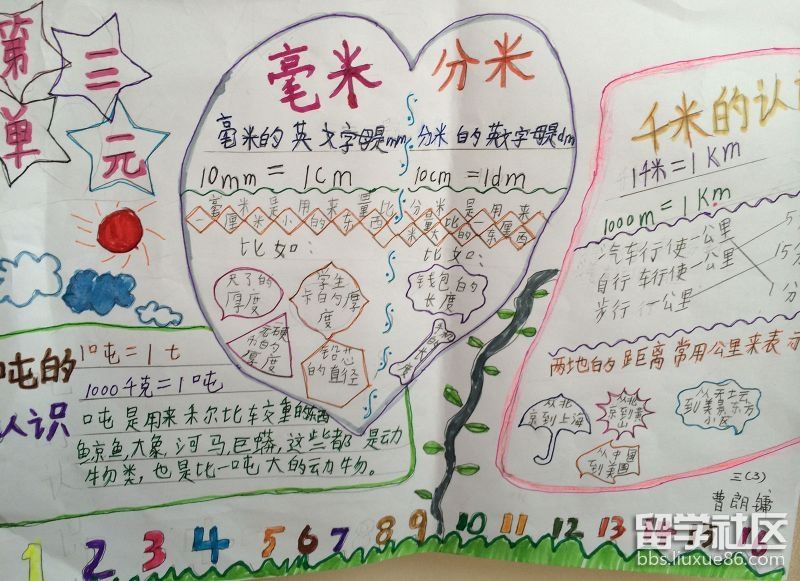 第三
单元
毫米
毫米的英文字母是mm
10mm=1cm
毫米是用来量比
一厘米小的东西
比如：
尺子的厚度
学生卡的厚度
硬币的厚度
铅芯的直径
分米
分米的英文字母是dm
10cm=1dm
分米是用来
量比一厘米大的东西
比如：
钱包的长度
千米的认
1千米=1Km
1000m=1Km
汽车行使一公里
自行车行使一公里
步行一公里
5
15分
1分
两地的距离常用公里来表示
从北京到上海
从北京到黄山
从中国到美国
三(3)
曹朗镛
吨的
认识
1吨=1t
1000千克=1吨
吨是用来称比较重的东西
鲸鱼,大象,河马,巨蟒,这些都是动
物类,也是比一吨大的动物。
1 2 3 4 5 6 7 8 9 10 11 12 13 14 15 16
留学社区
bbs.liuxue86.com